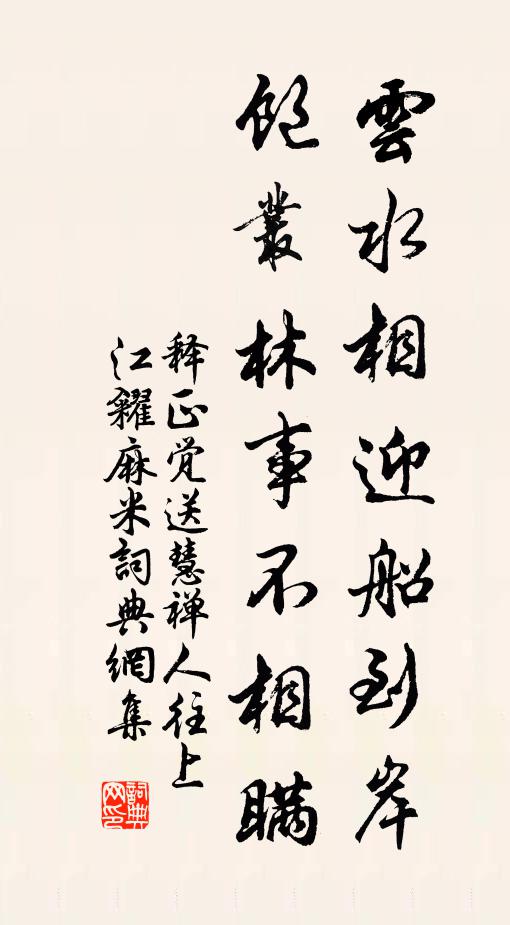 雲水相迎船到岸
飽叢林事不相瞞
释正觉送慧禅人往上
江糴麻米詞典網集
詞典网印